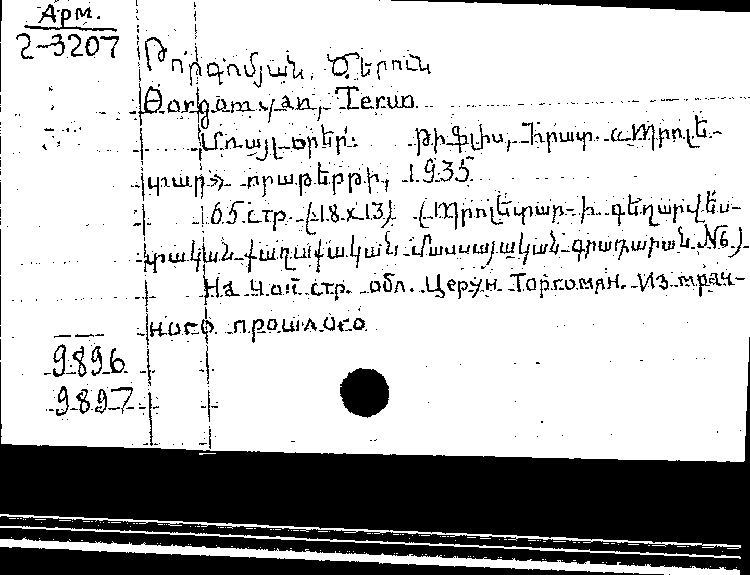 Арм.
2-3207
Թորգոմյան, Ծերուն
Torgomyan, Terun
Մռայլ օրեր: Թիֆլիս, Հրատ. «Պրոլե-
տար» օրաթերթի, 1935
65 стр. (18x13) (Պրոլետար-ի գեղարվես-
տական քաղաքական մասսայական գրադարան №6)
На 4ой стр. обл. Церун Торгомян. Из мрач-
ного прошлого
9896
9897